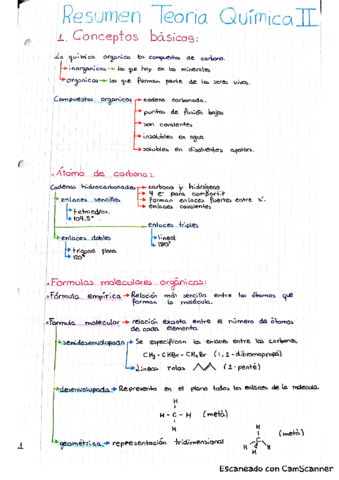 Resumen Teoría Química II
1. Conceptos básicos:
La química orgánica es compuestos de carbono.
inorgánicos → los que hay en los minerales
orgánicos → los que forman parte de los seres vivos.
Compuestos orgánicos → cadena carbonada.
puntos de fusión bajos
son covalentes
insolubles en agua
solubles en disolventes apolars.
· Átomo de carbono:
Cadenas hidrocarbonadas → carbono y hidrógeno
4 e⁻ para compartir
enlaces sencillos
forman enlaces fuertes entre sí.
enlaces covalentes
tetraedros.
109.5°
enlaces triples
lineal
180°
enlaces dobles
trigonal plana
120°
· Formulas moleculares orgánicas:
· Fórmula empírica → Relación más sencilla entre los átomos que
forman la molécula.
· Formula molecular → relación exacta entre el número de átomos
de cada elemento.
semidesenvolupada → Se especifican los enlaces entre los carbonos.
CH₃ - CHBr - CH₂Br (1,2-dibromopropà)
Lineas rotas (2-pentè)
desenvolupada → Representa en el plano todos los enlaces de la molécula.
H
H - C - H (metà)
H
geométrica → representación tridimensional
H
C
H H
H
(metà)
1
Escaneado con CamScanner